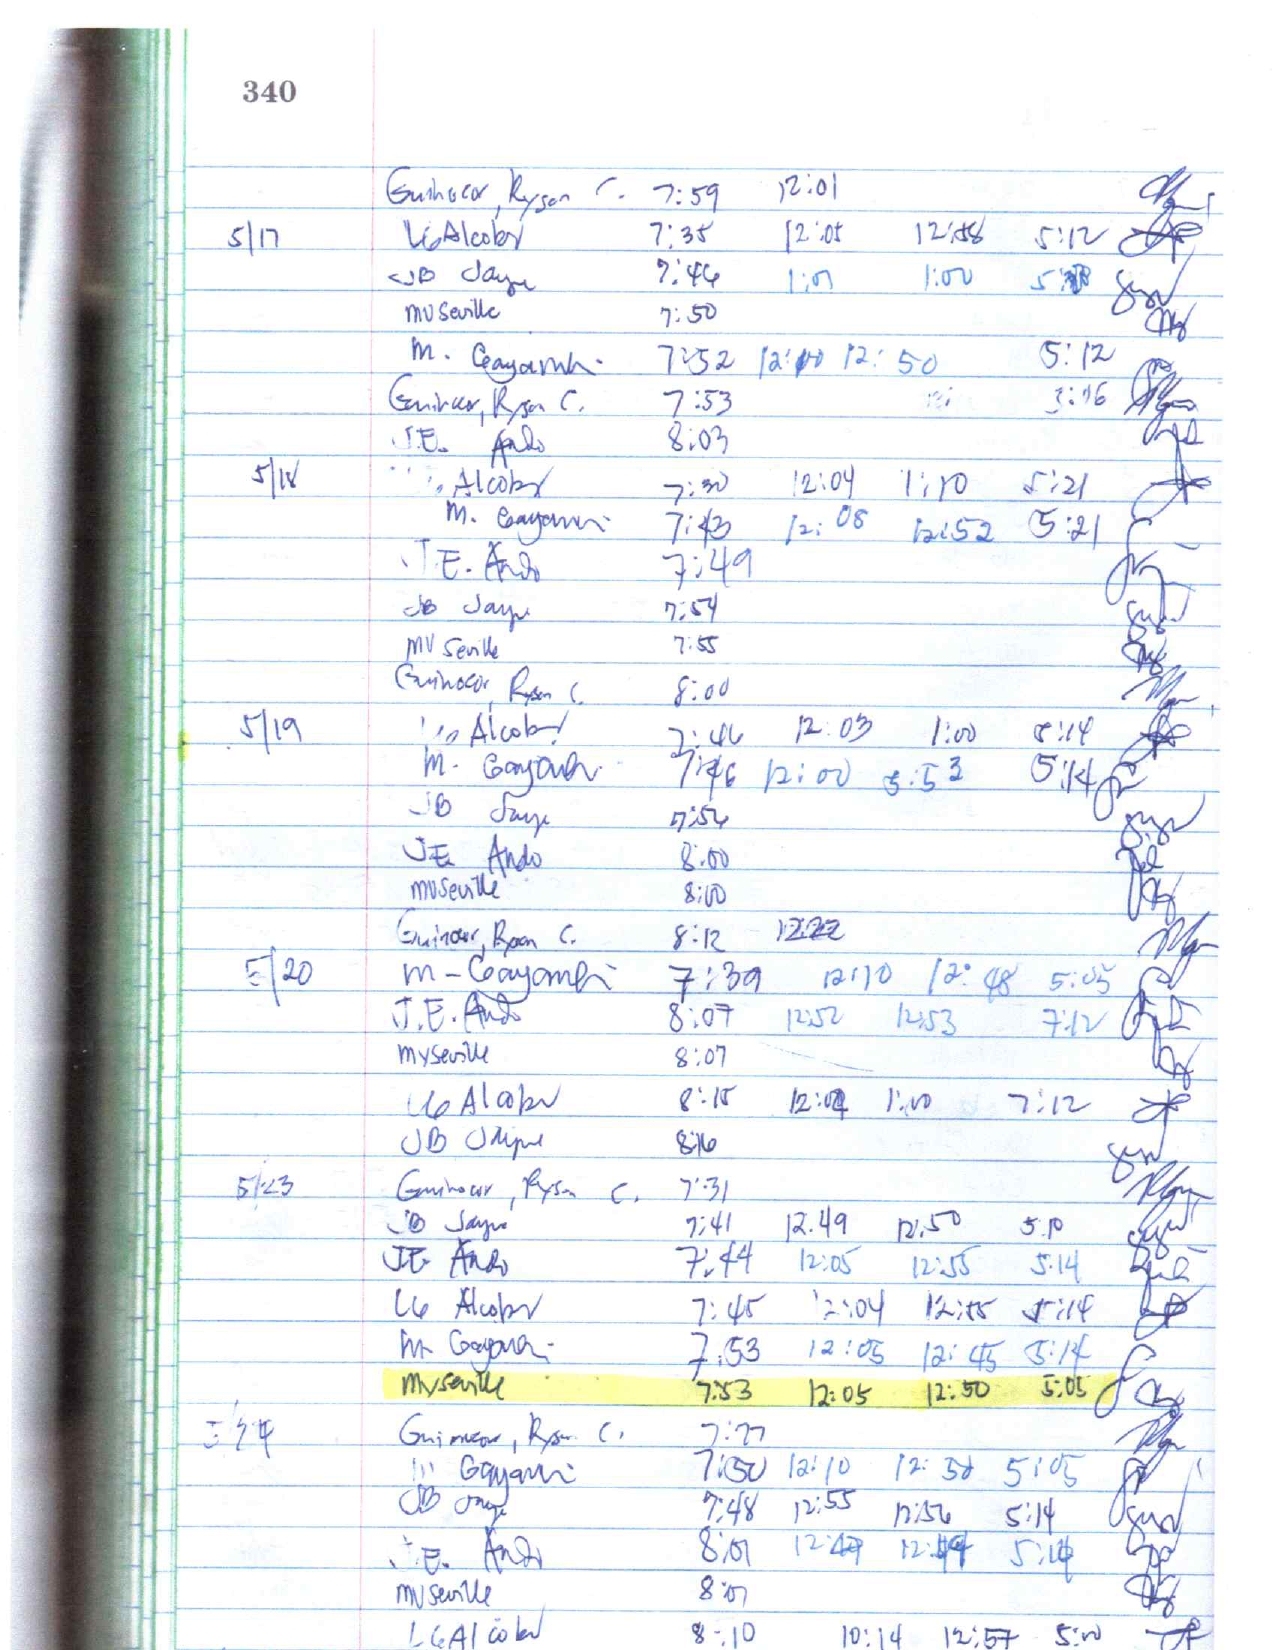 340
Guihocor, Ryson C. 7:59 12:01
5/17 LG Alcober 7:35 12:05 12:58 5:12
JB Jaype 7:46 1:01 1:00
MVSeville 7:50
M. Gayamhi 7:52 12:00 12:50 5:12
Guihocor, Ryson C. 7:53
J.E. Ando 8:03
5/18 Alcober 7:30 12:04 1:10 5:21
M. Gayamhi 7:43 12:08 12:52 5:21
J.E. Ando 7:49
JB Jaype 7:54
MV Seville 7:55
Guihocor, Ryson C. 8:00
5/19 Alcober 7:46 12:03 1:00 5:14
M. Gayamhi 7:46 12:00 5:14
JB Jaype 7:56
J.E. Ando 8:00
MVSeville 8:00
Guihocor, Ryson C. 8:12 12:22
5/20 M-Gayamhi 7:39 12:10 12:48 5:05
J.E. Ando 8:07 12:52 12:53 7:12
MVSeville 8:07
LG Alcober 8:15 12:09 1:00 7:12
JB Jaype 8:16
5/23 Guihocor, Ryson C. 7:31
JB Jaype 7:41 12:49 12:50 5:10
J.E. Ando 7:44 12:05 12:55 5:14
LG Alcober 7:45 12:04 12:55 5:14
M Gayamhi 7:53 12:05 12:45 5:14
MVSeville 7:53 12:05 12:50 5:05
5/24 Guihocor, Ryson C. 7:27
Gayamhi 7:50 12:10 12:50 5:05
JB Jaype 7:48 12:55 12:56 5:14
J.E. Ando 8:01 5:14
MVSeville 8:01
LG Alcober 8:10 10:14 12:57 5:00